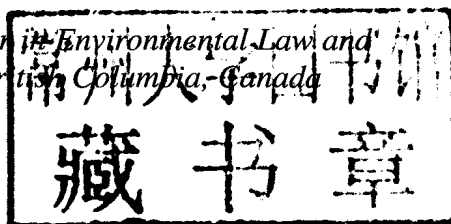 n in Environmental Law and
ritish Columbia, Canada
常州大学图书馆
藏书章